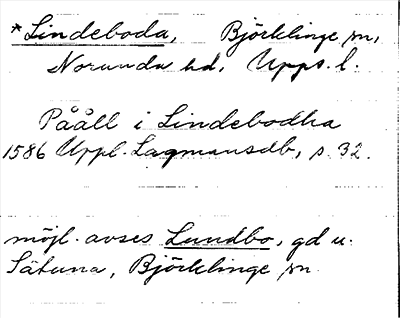 *Lindeboda, Björklinge sn,
Norunda hd, Upps. l.
Pååll i Lindebodha
1586 Uppl. Lagmansdb, s. 32.
möjl. avses Lundbo, gd u.
Sätuna, Björklinge sn